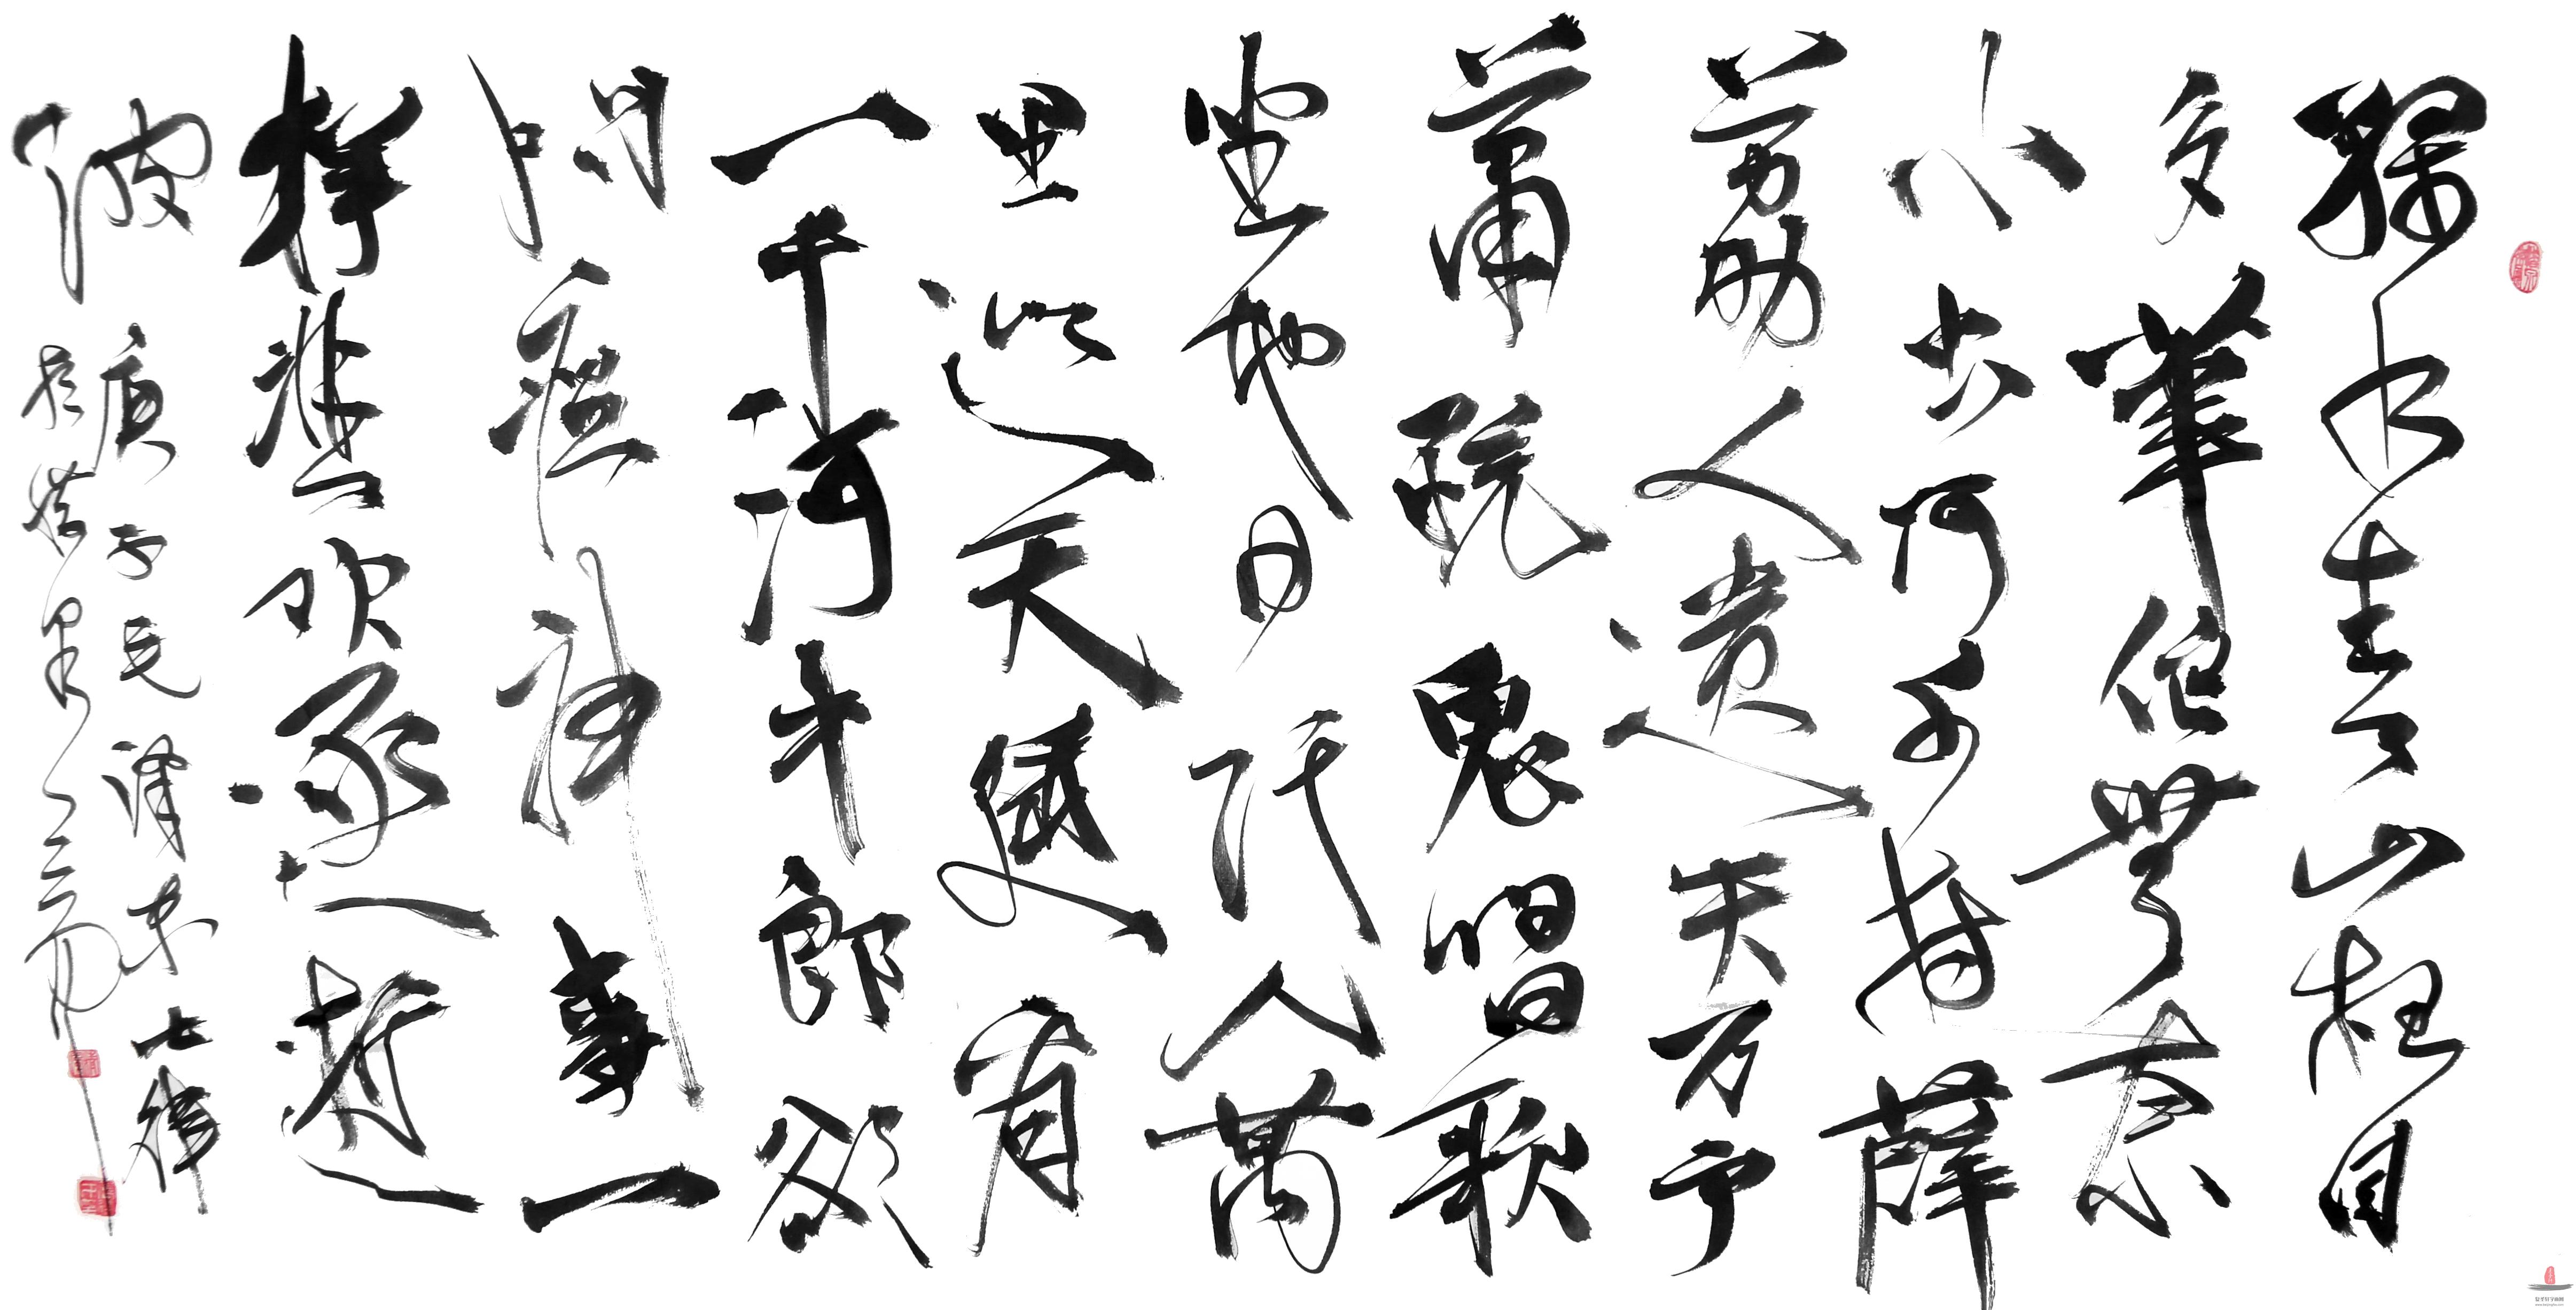 綠水青山枉自
多華佗無奈
小虫何千村薜
荔人遗矢万户
蕭疏鬼唱歌
坐地日行八萬
里巡天遥看
一千河牛郎欲
問瘟神事一
樣悲欢逐逝
波 庚子毛澤東七律